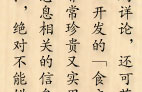 详论，还可
开发的「食
常珍贵又实用
息相关的信息
，绝对不能